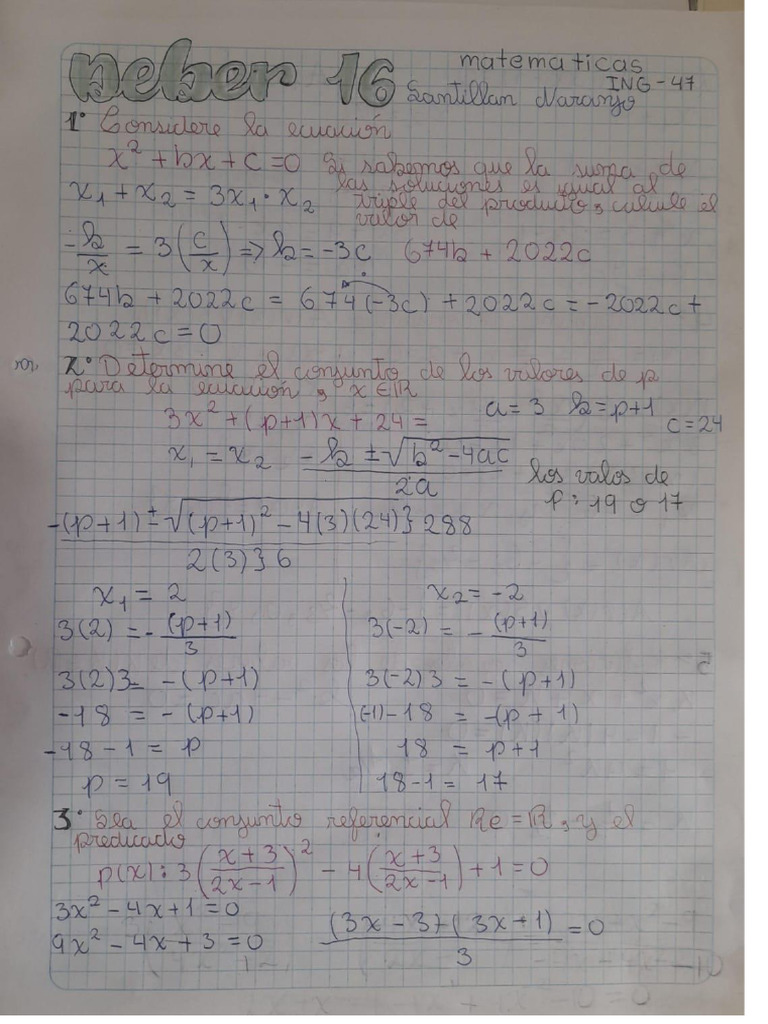 Deber 16
matematicas
ING-47
Santillan Naranjo
1° Considere la ecuación
x² + bx + c = 0 Si sabemos que la suma de
las soluciones es igual al
x₁ + x₂ = 3x₁ · x₂ triple del producto, calcule el
valor de
-b/x = 3(c/x) ⇒ b = -3c 674b + 2022c
674b + 2022c = 674(-3c) + 2022c = -2022c +
2022c = 0
2° Determine el conjunto de los valores de p
para la ecuación, x ∈ ℝ
3x² + (p+1)x + 24 = a = 3 b = p+1 c = 24
x₁ = x₂ (-b ± √(b² - 4ac))/2a
los valos de
p: 19 o 17
(-(p+1) ± √((p+1)² - 4(3)(24)} 288)/(2(3)} 6)
x₁ = 2 x₂ = -2
3(2) = -(p+1)/3 3(-2) = -(p+1)/3
3(2)3 = -(p+1) 3(-2)3 = -(p+1)
-18 = -(p+1) (-1)-18 = -(p+1)
-18 - 1 = p 18 = p+1
p = 19 18-1 = 17
3° Sea el conjunto referencial Re = ℝ, y el
predicado
p(x): 3((x+3)/(2x-1))² - 4((x+3)/(2x-1)) + 1 = 0
3x² - 4x + 1 = 0
9x² - 4x + 3 = 0 (3x - 3)(3x + 1)/3 = 0